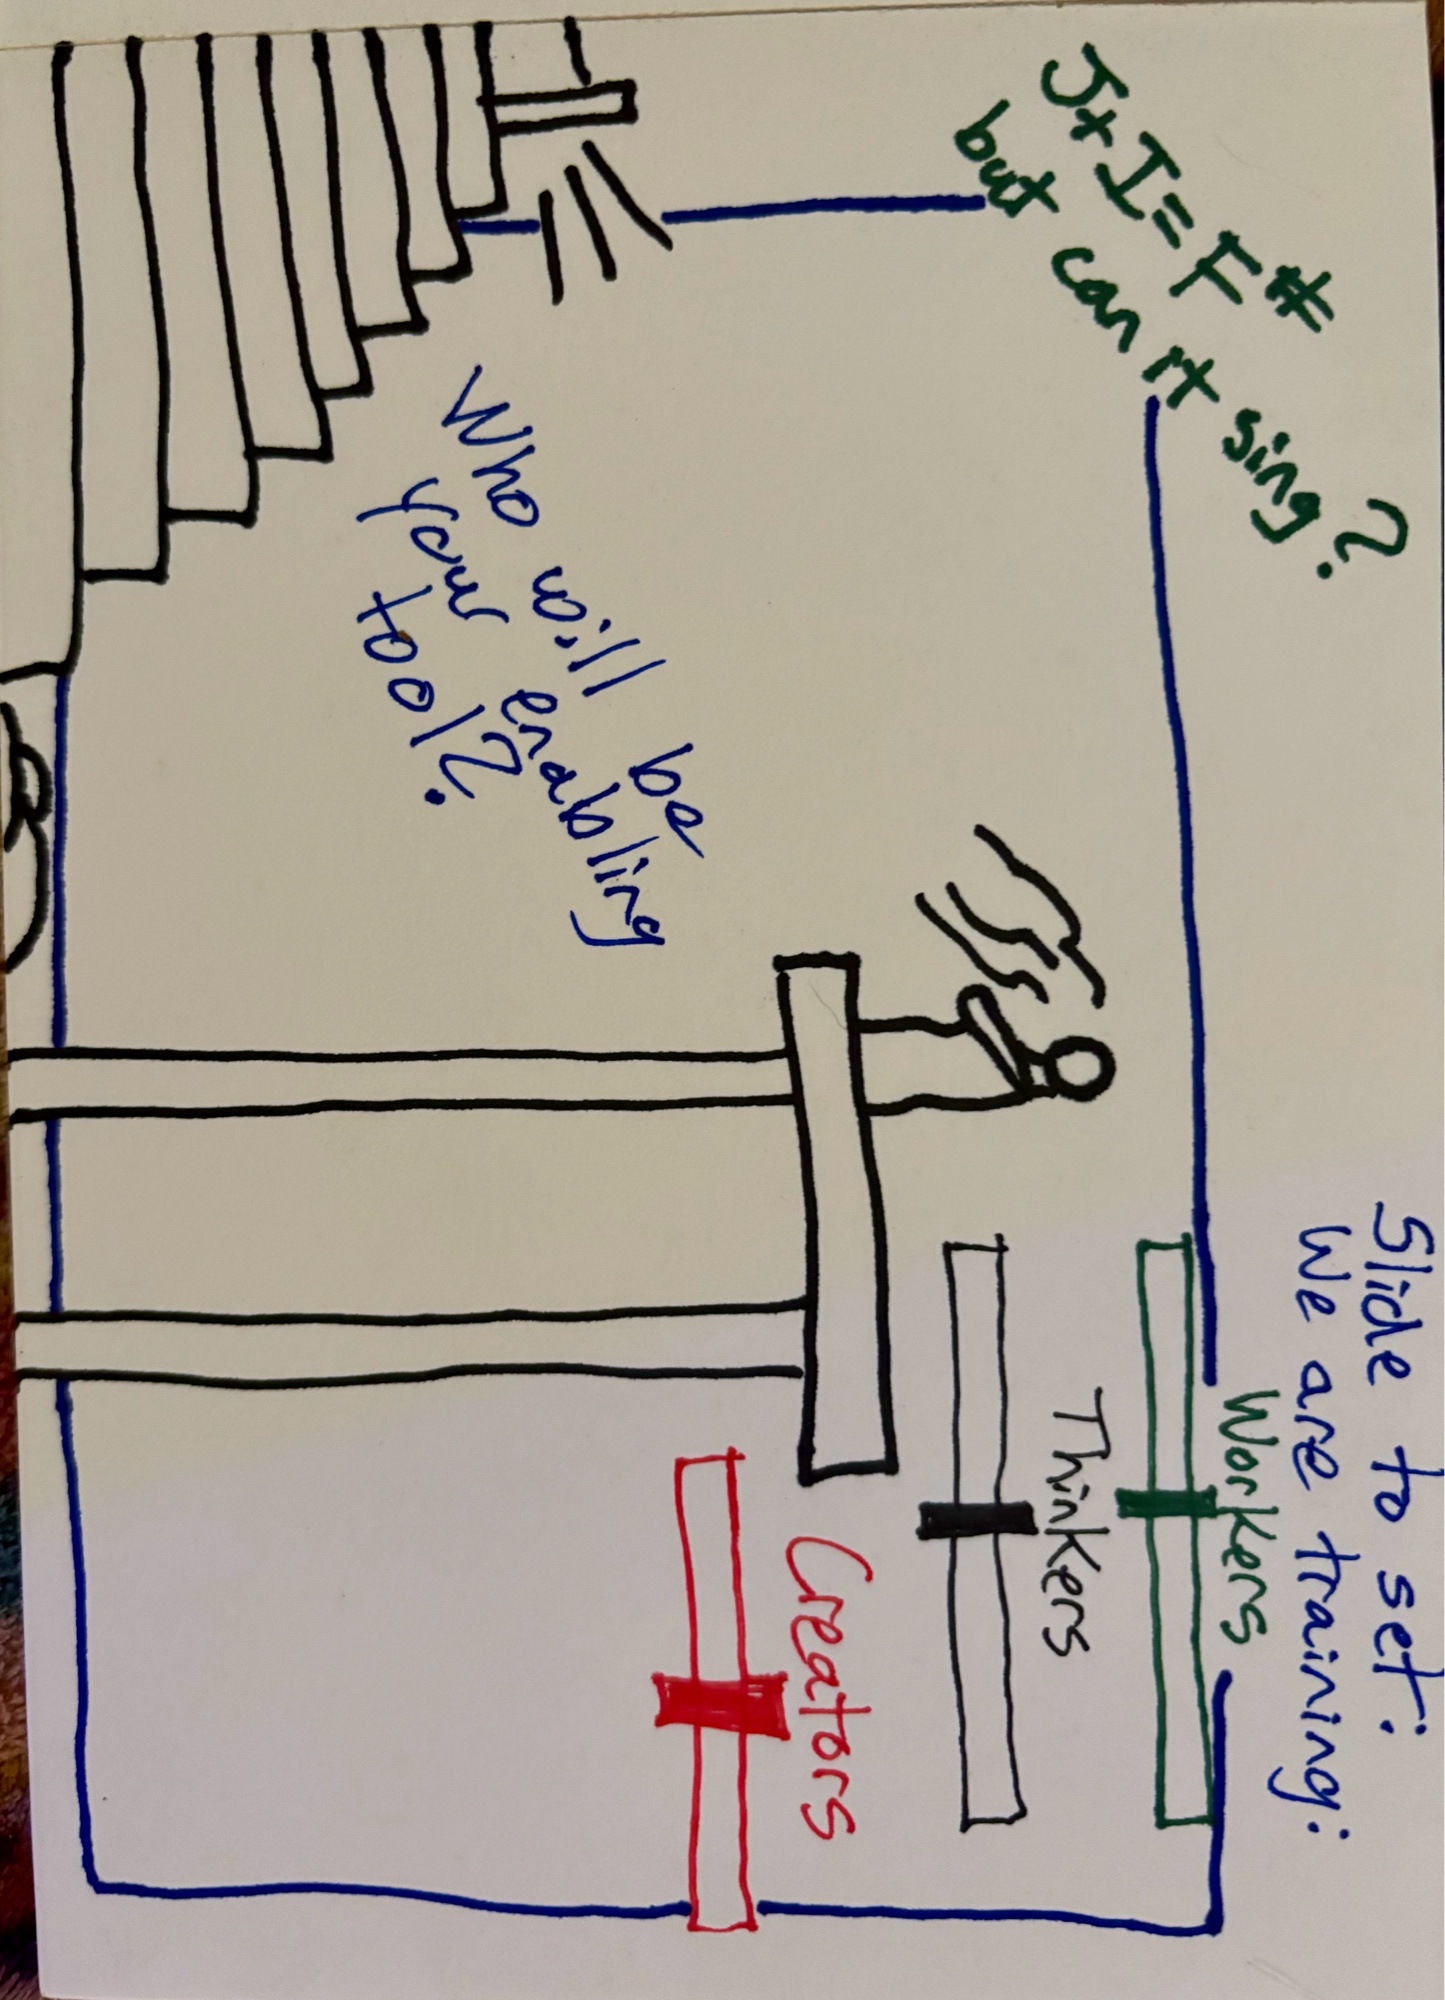 J+I=F#
but can it sing?
Slide to set:
We are training:
Workers
Thinkers
Creators
Who will be
your enabling
tool?